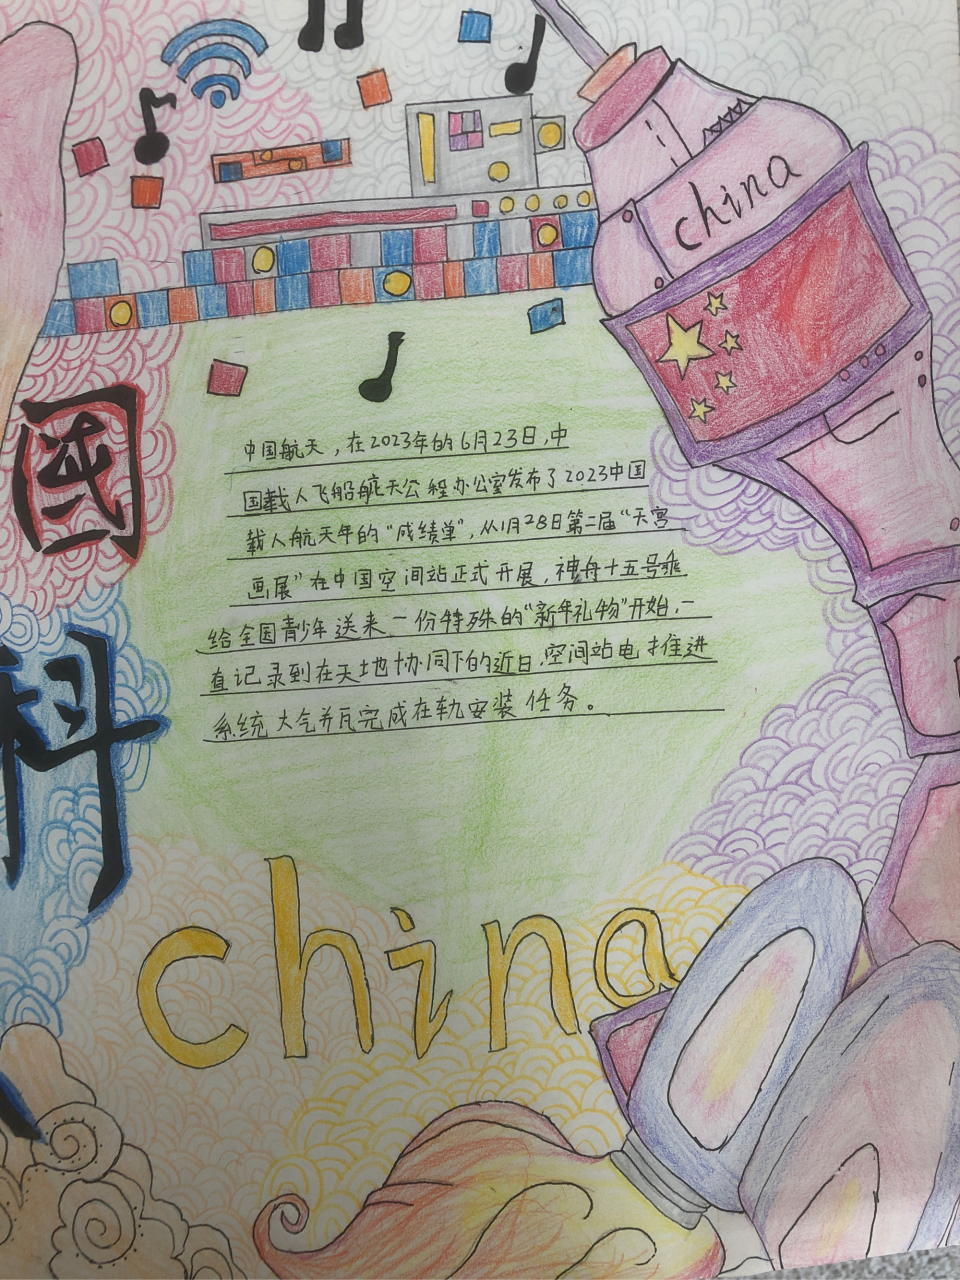 china
国
科
中国航天，在2023年的6月23日，中
国载人飞船航天公程办公室发布了2023中国
载人航天年的“成绩单”，从1月28日第二届“天宫
画展”在中国空间站正式开展，神舟十五号乘
给全国青少年送来一份特殊的“新年礼物”开始，一
直记录到在天地协同下的近日，空间站电推进
系统大气并瓦完成在轨安装任务。
china